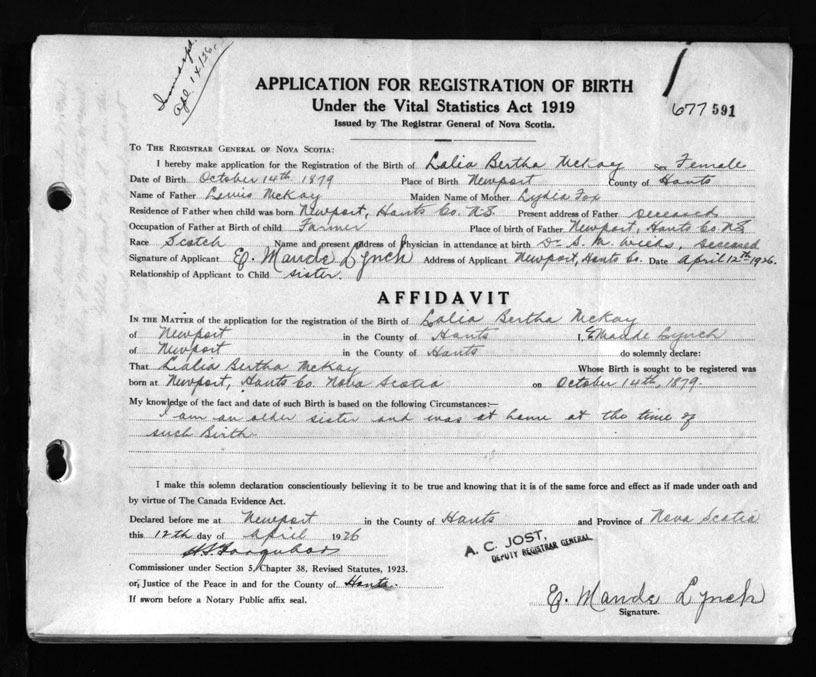 Apl. 14/36.
APPLICATION FOR REGISTRATION OF BIRTH
Under the Vital Statistics Act 1919
Issued by The Registrar General of Nova Scotia.
677 591
To The Registrar General of Nova Scotia:
I hereby make application for the Registration of the Birth of Lalia Bertha McKay Sex Female
Date of Birth October 14th 1879 Place of Birth Newport County of Hants
Name of Father Lewis McKay Maiden Name of Mother Lydia Fox
Residence of Father when child was born Newport, Hants Co. N.S. Present address of Father Deceased
Occupation of Father at Birth of child Farmer Place of birth of Father Newport, Hants Co. N.S.
Race Scotch Name and present address of Physician in attendance at birth Dr. S. M. Weeks, Deceased
Signature of Applicant E. Maude Lynch Address of Applicant Newport, Hants Co. Date April 12th 1926.
Relationship of Applicant to Child sister.
AFFIDAVIT
In the Matter of the application for the registration of the Birth of Lalia Bertha McKay
of Newport in the County of Hants I, E Maude Lynch
of Newport in the County of Hants do solemnly declare:
That Lalia Bertha McKay Whose Birth is sought to be registered was
born at Newport, Hants Co. Nova Scotia on October 14th, 1879.
My knowledge of the fact and date of such Birth is based on the following Circumstances:—
I am an older sister and was at home at the time of
such Birth
I make this solemn declaration conscientiously believing it to be true and knowing that it is of the same force and effect as if made under oath and
by virtue of The Canada Evidence Act.
Declared before me at Newport in the County of Hants and Province of Nova Scotia
this 12th day of April 1926
A. C. JOST,
DEPUTY REGISTRAR GENERAL
Commissioner under Section 5, Chapter 38, Revised Statutes, 1923.
or, Justice of the Peace in and for the County of Hants.
If sworn before a Notary Public affix seal.
E. Maude Lynch
Signature.